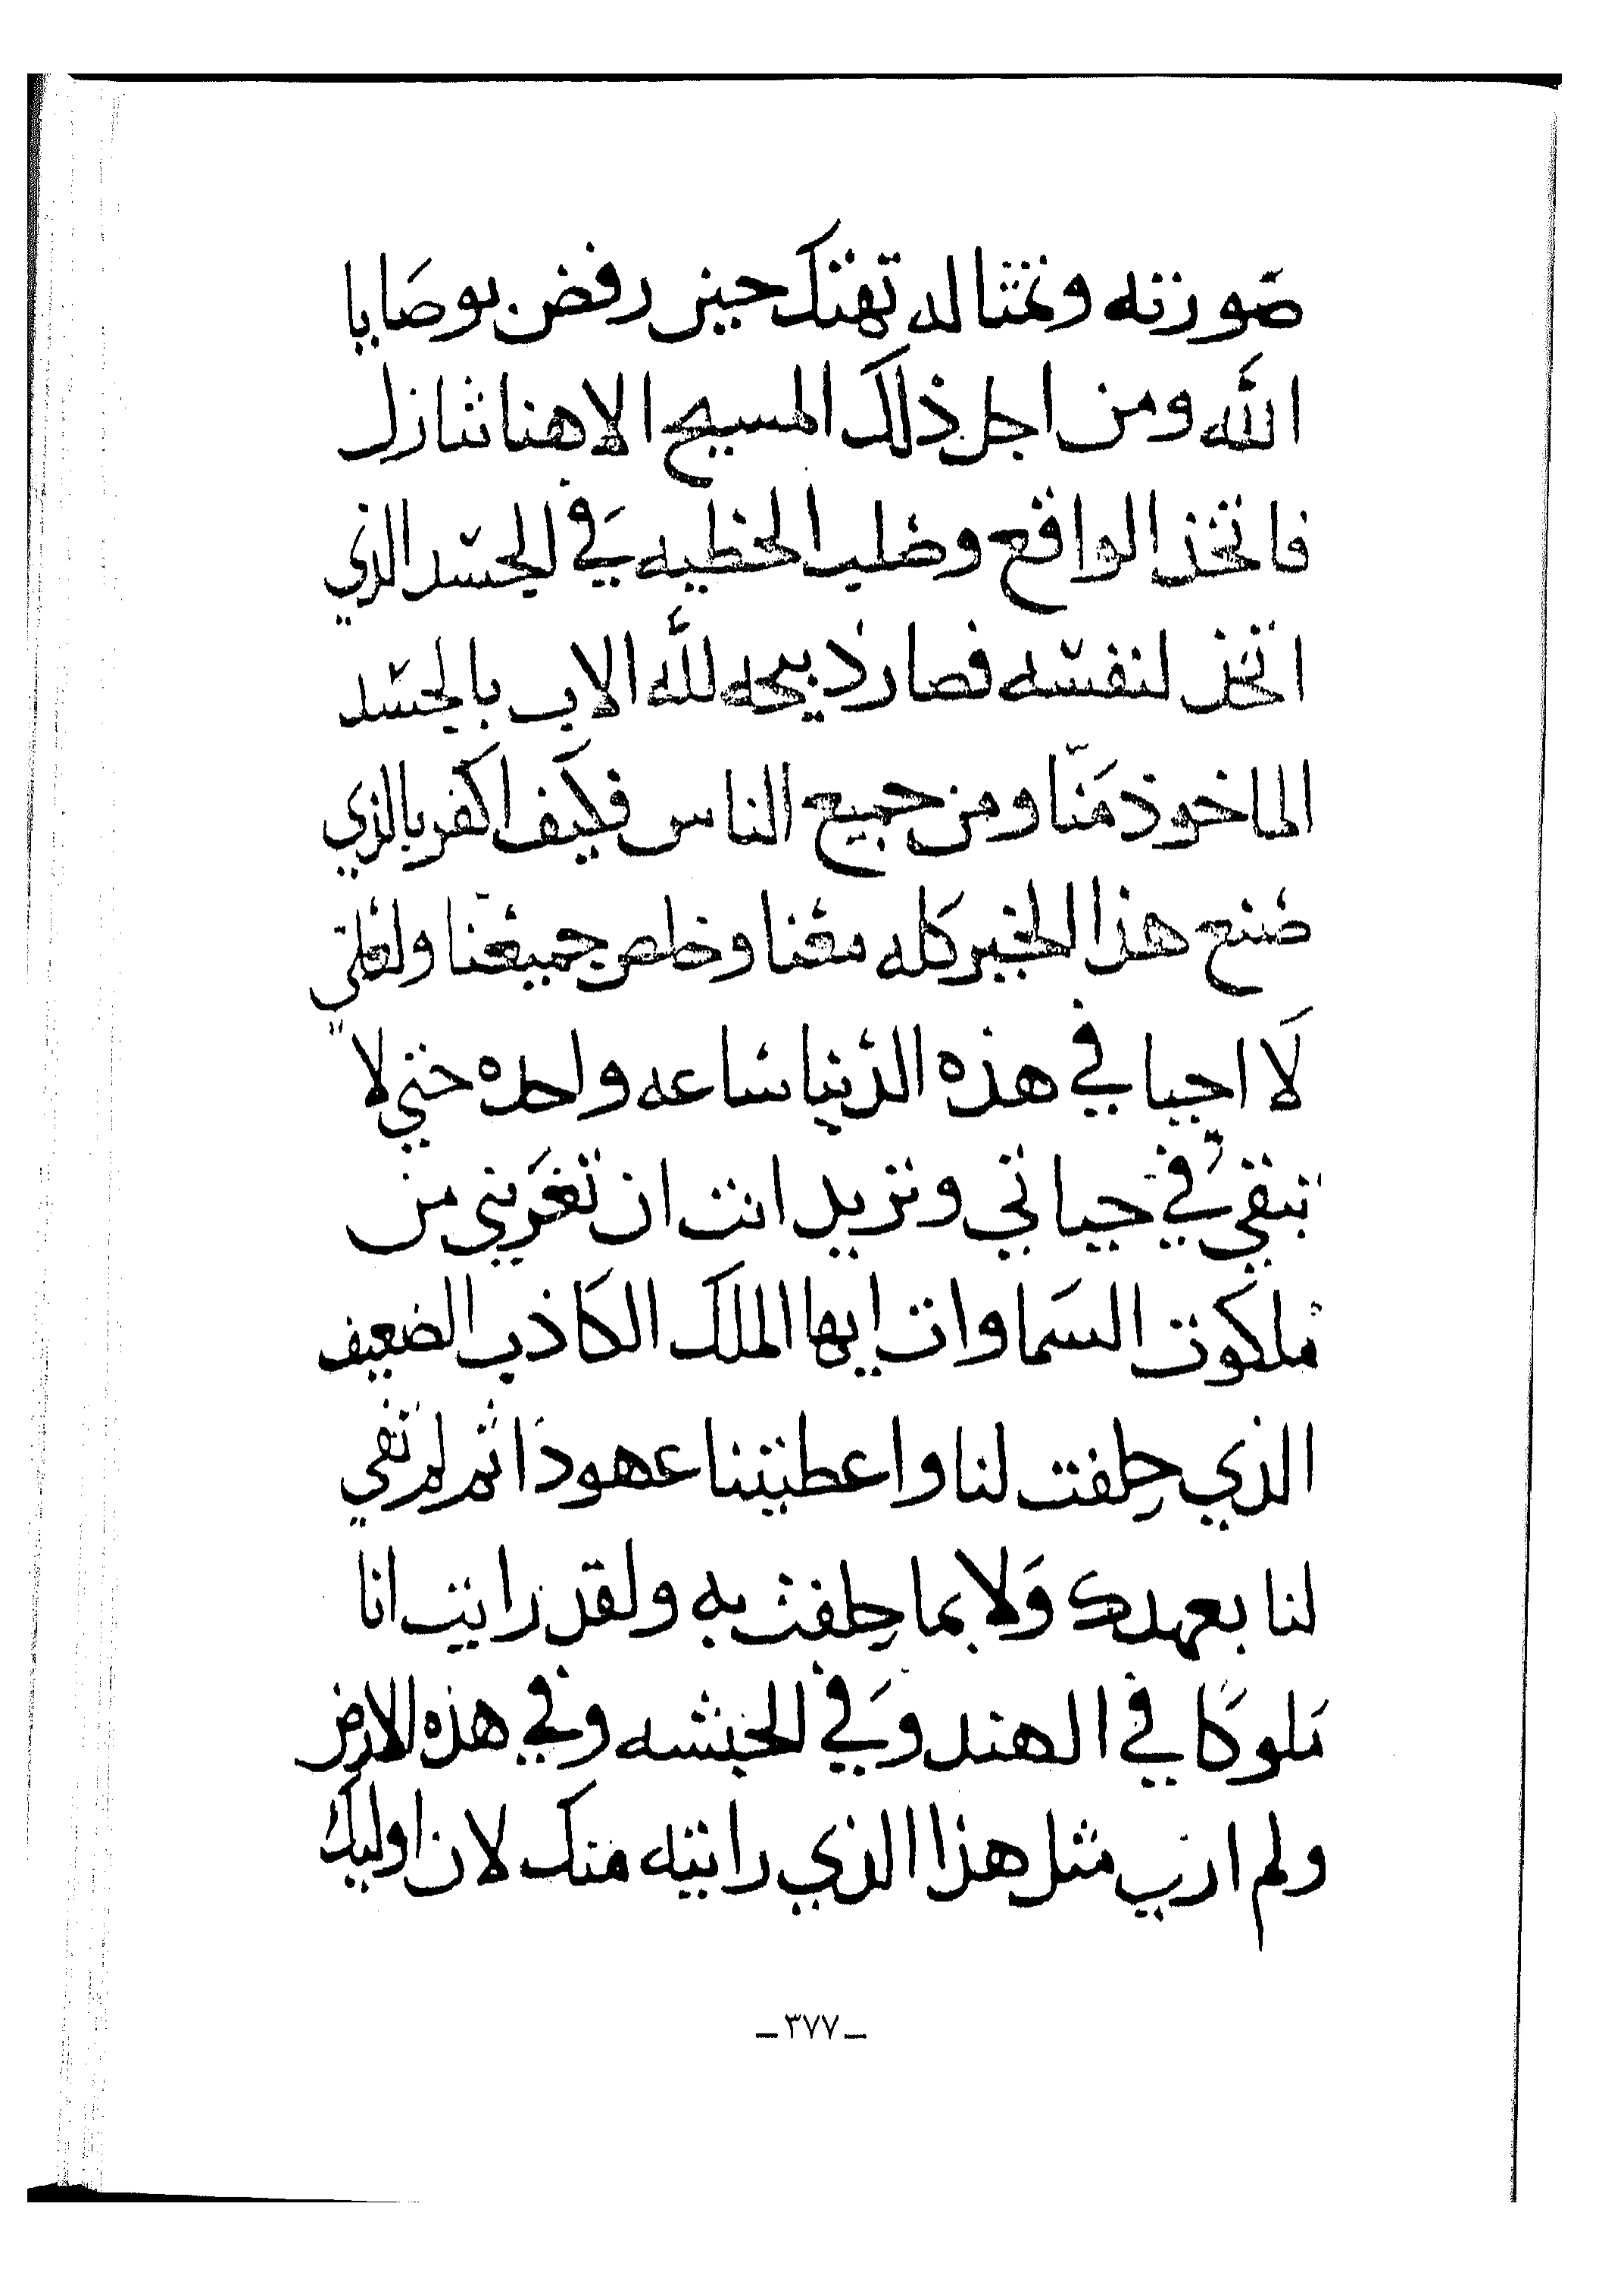 صورته وتمثاله تهتك حين رفض بوصايا
الله ومن اجل ذلك المسيح الاهنا تنازل
فاتخذ الواقع وصلب الخطيه في الجسد الذي
اتخذ لنفسه فصار ذبيحه لله الاب بالجسد
الماخوذ منا ومن جميع الناس فكيف اكفر بالذي
صنع هذا الخير كله معنا وخلص جميعنا ولعلي
لا احيا في هذه الدنيا ساعه واحده حتي لا
تبقي في حياتي وتريد انت ان تغربني من
ملكوت السماوات ايها الملك الكاذب الضعيف
الذي حلفت لنا واعطيتنا عهودا ثم لم تفي
لنا بعهدك ولا بما حلفت به ولقد رايت انا
ملوكا في الهند وفي الحبشه وفي هذه الارض
ولم اري مثل هذا الذي رايته منك لان اوليك
ـ ٣٧٧ ـ